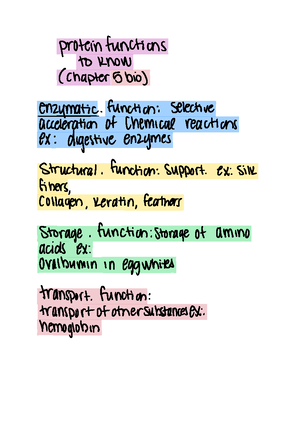 protein functions
to know
(chapter 5 bio)
enzymatic. function: selective
acceleration of chemical reactions
ex: digestive enzymes
Structural. function: support. ex: silk
fibers,
collagen, keratin, feathers
Storage. function: storage of amino
acids ex:
Ovalbumin in egg whites
transport. function:
transport of other substances ex:
hemoglobin